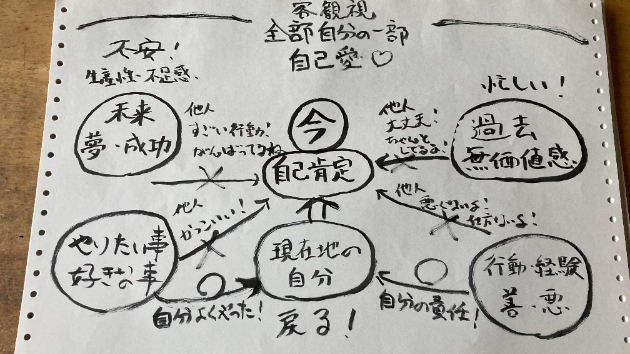 客観視
全部自分の一部
自己愛♡
不安!
生産性・不足感
未来
夢・成功
他人
すごい行動!
がんばってるね
今
自己肯定
他人
大丈夫!
ちゃんと
してるよ!
忙しい!
過去
無価値感
他人
かっこいい!
他人
悪くないよ!
仕方ないよ!
やりたい事
好きな事
現在地の
自分
行動・経験
善・悪
自分よくやった!
戻る!
自分の責任!